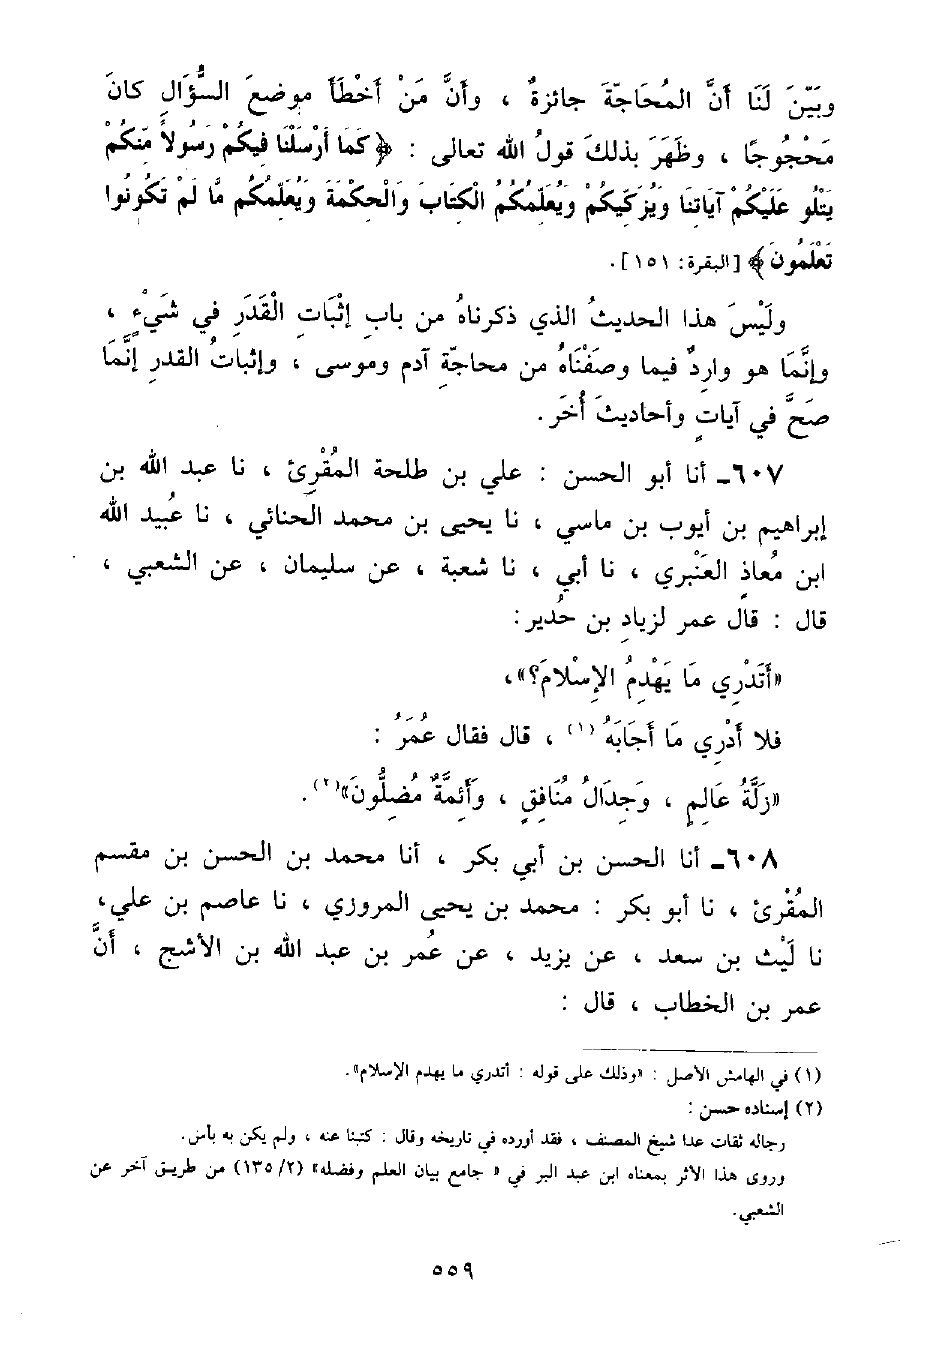 وبَيَّنَ لَنَا أَنَّ المُحَاجّةَ جائزةٌ ، وأَنَّ مَنْ أَخْطَأَ موضعَ السُّؤَالِ كانَ
مَحْجُوجًا ، وظَهَرَ بذلكَ قولُ الله تعالى : ﴿كَمَا أَرْسَلْنَا فِيكُمْ رَسُولاً مِّنكُمْ
يَتْلُو عَلَيْكُمْ آيَاتِنَا وَيُزَكِّيكُمْ وَيُعَلِّمُكُمُ الْكِتَابَ وَالْحِكْمَةَ وَيُعَلِّمُكُم مَّا لَمْ تَكُونُوا
تَعْلَمُونَ﴾ [البقرة: ١٥١].
ولَيْسَ هذا الحديثُ الذي ذكرناهُ من بابِ إثْبَاتِ الْقَدَرِ في شَيْءٍ ،
وإنَّمَا هو واردٌ فيما وصَفْنَاهُ من محاجّةِ آدم وموسى ، وإثباتُ القدرِ إنَّمَا
صَحَّ في آياتٍ وأحاديثَ أُخَر.
٦٠٧ـ أنا أبو الحسن : علي بن طلحة المُقْرِئ ، نا عبد الله بن
إبراهيم بن أيوب بن ماسي ، نا يحيى بن محمد الحنائي ، نا عُبيد الله
ابن مُعاذِ العَنْبري ، نا أبي ، نا شعبة ، عن سليمان ، عن الشعبي ،
قال : قال عمر لزيادِ بن حُدير:
«أَتَدْرِي مَا يَهْدِمُ الإِسْلامَ؟»،
فلا أَدْرِي مَا أَجَابَهُ (١) ، قال فقال عُمَرُ :
«زَلَّةُ عَالِمٍ ، وَجِدَالُ مُنَافِقٍ ، وَأَئِمَّةٌ مُضِلُّونَ»(٢).
٦٠٨ـ أنا الحسن بن أبي بكر ، أنا محمد بن الحسن بن مقسم
المُقْرئ ، نا أبو بكر : محمد بن يحيى المروزي ، نا عاصم بن علي،
نا لَيْث بن سعد ، عن يزيد ، عن عُمر بن عبد الله بن الأشج ، أنَّ
عمر بن الخطاب ، قال :
(١) في الهامش الأصل : «وذلك على قوله : أتدري ما يهدم الإسلام».
(٢) إسناده حسن :
رجاله ثقات عدا شيخ المصنف ، فقد أورده في تاريخه وقال : كتبنا عنه ، ولم يكن به بأس.
وروى هذا الأثر بمعناه ابن عبد البر في « جامع بيان العلم وفضله» (٢/ ١٣٥) من طريق آخر عن
الشعبي.
٥٥٩